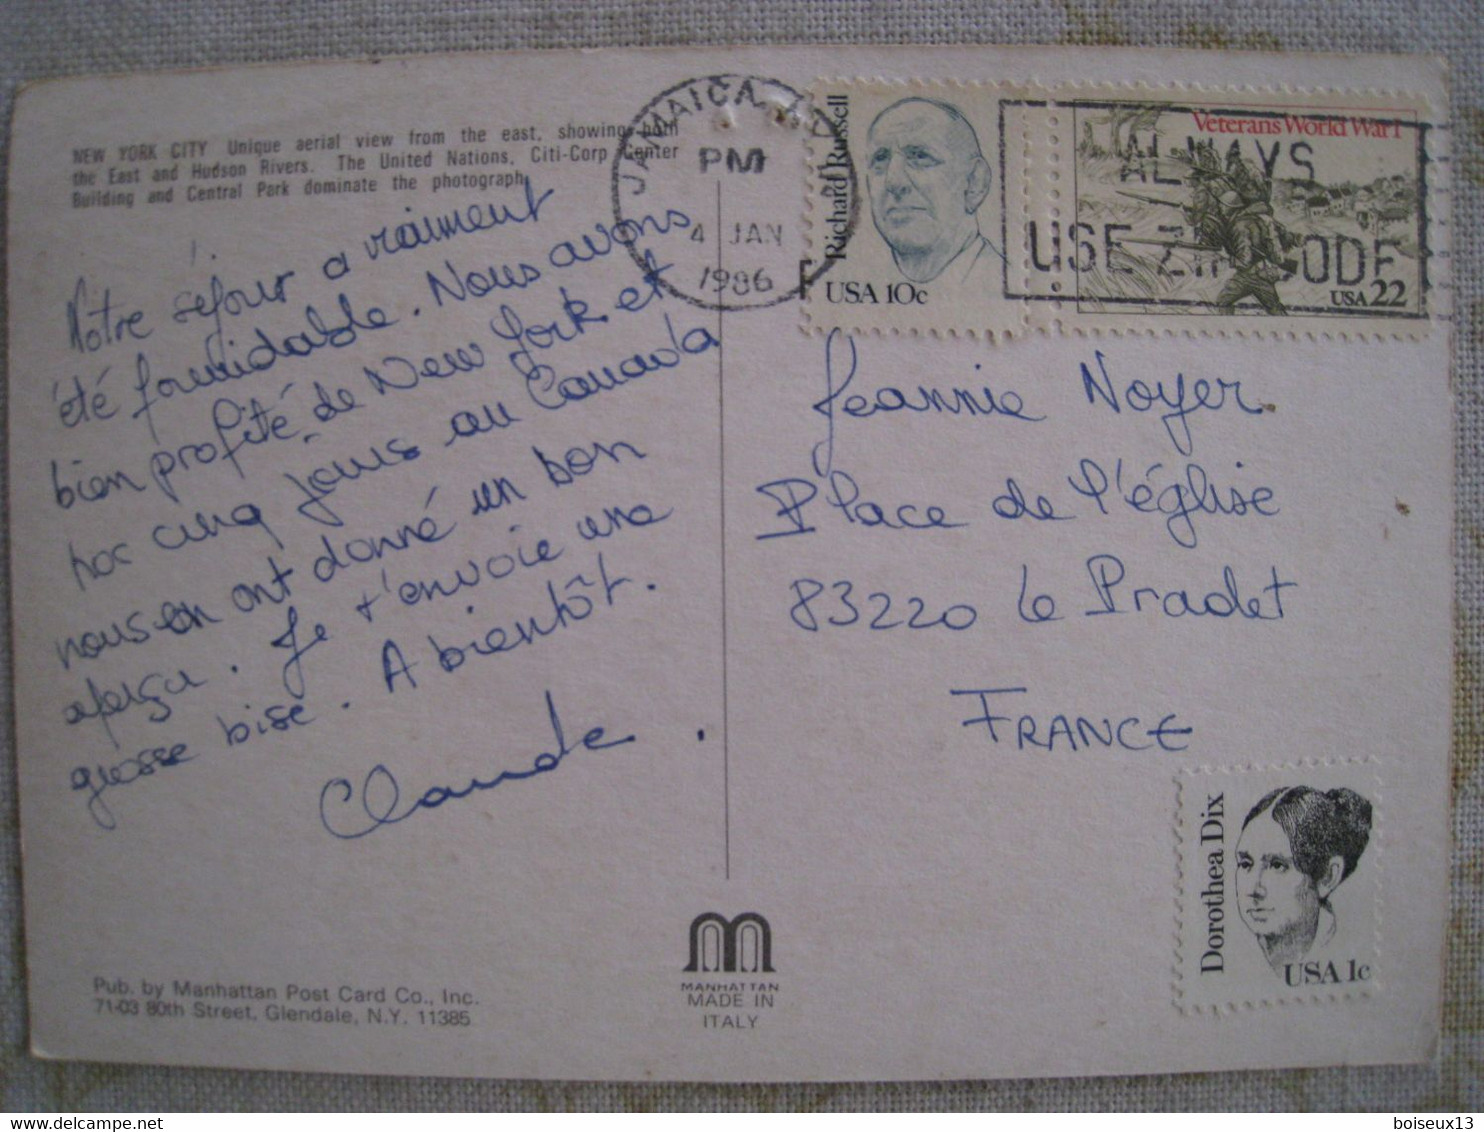 NEW YORK CITY Unique aerial view from the east, showing both
the East and Hudson Rivers. The United Nations, Citi-Corp Center
Building and Central Park dominate the photograph.
Notre séjour a vraiment
été formidable. Nous avons
bien profité de New York et
nos cinq jours au Canada
nous en ont donné un bon
aperçu. Je t'envoie une
grosse bise. A bientôt.
Claude.
Pub. by Manhattan Post Card Co., Inc.
71-03 80th Street, Glendale, N.Y. 11385
MANHATTAN
MADE IN
ITALY
JAMAICA,
PM
4 JAN
1986
Richard Russell
USA 10c
Veterans World War I
USA 22
ALWAYS
USE ZIP CODE
Jeannie Noyer
Place de l'église
83220 Le Pradet
FRANCE
Dorothea Dix
USA 1c
boiseux13